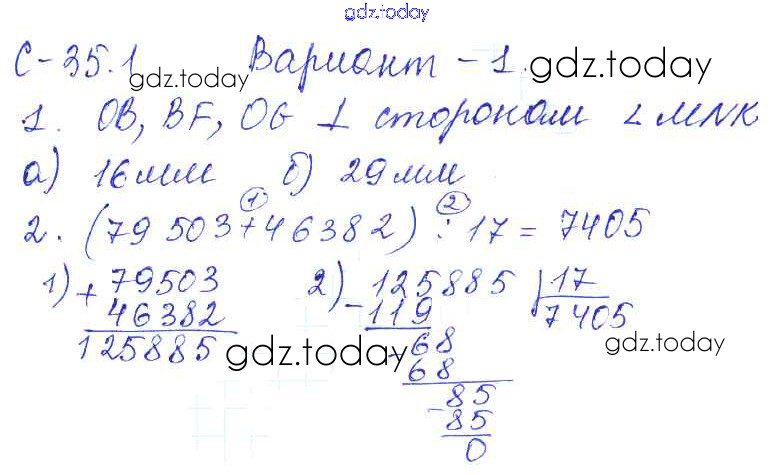 gdz.today
С-35.1 Вариант - 1.
gdz.today
1. OB, BF, OG ⊥ сторонам ∠ MNK
а) 16 мм б) 29 мм
① ②
2. (79 503 + 46 382) : 17 = 7405
1) + 79503 2) - 125885 | 17
46382 119 7405
125885 - 68
gdz.today gdz.today
68
85
- 85
0